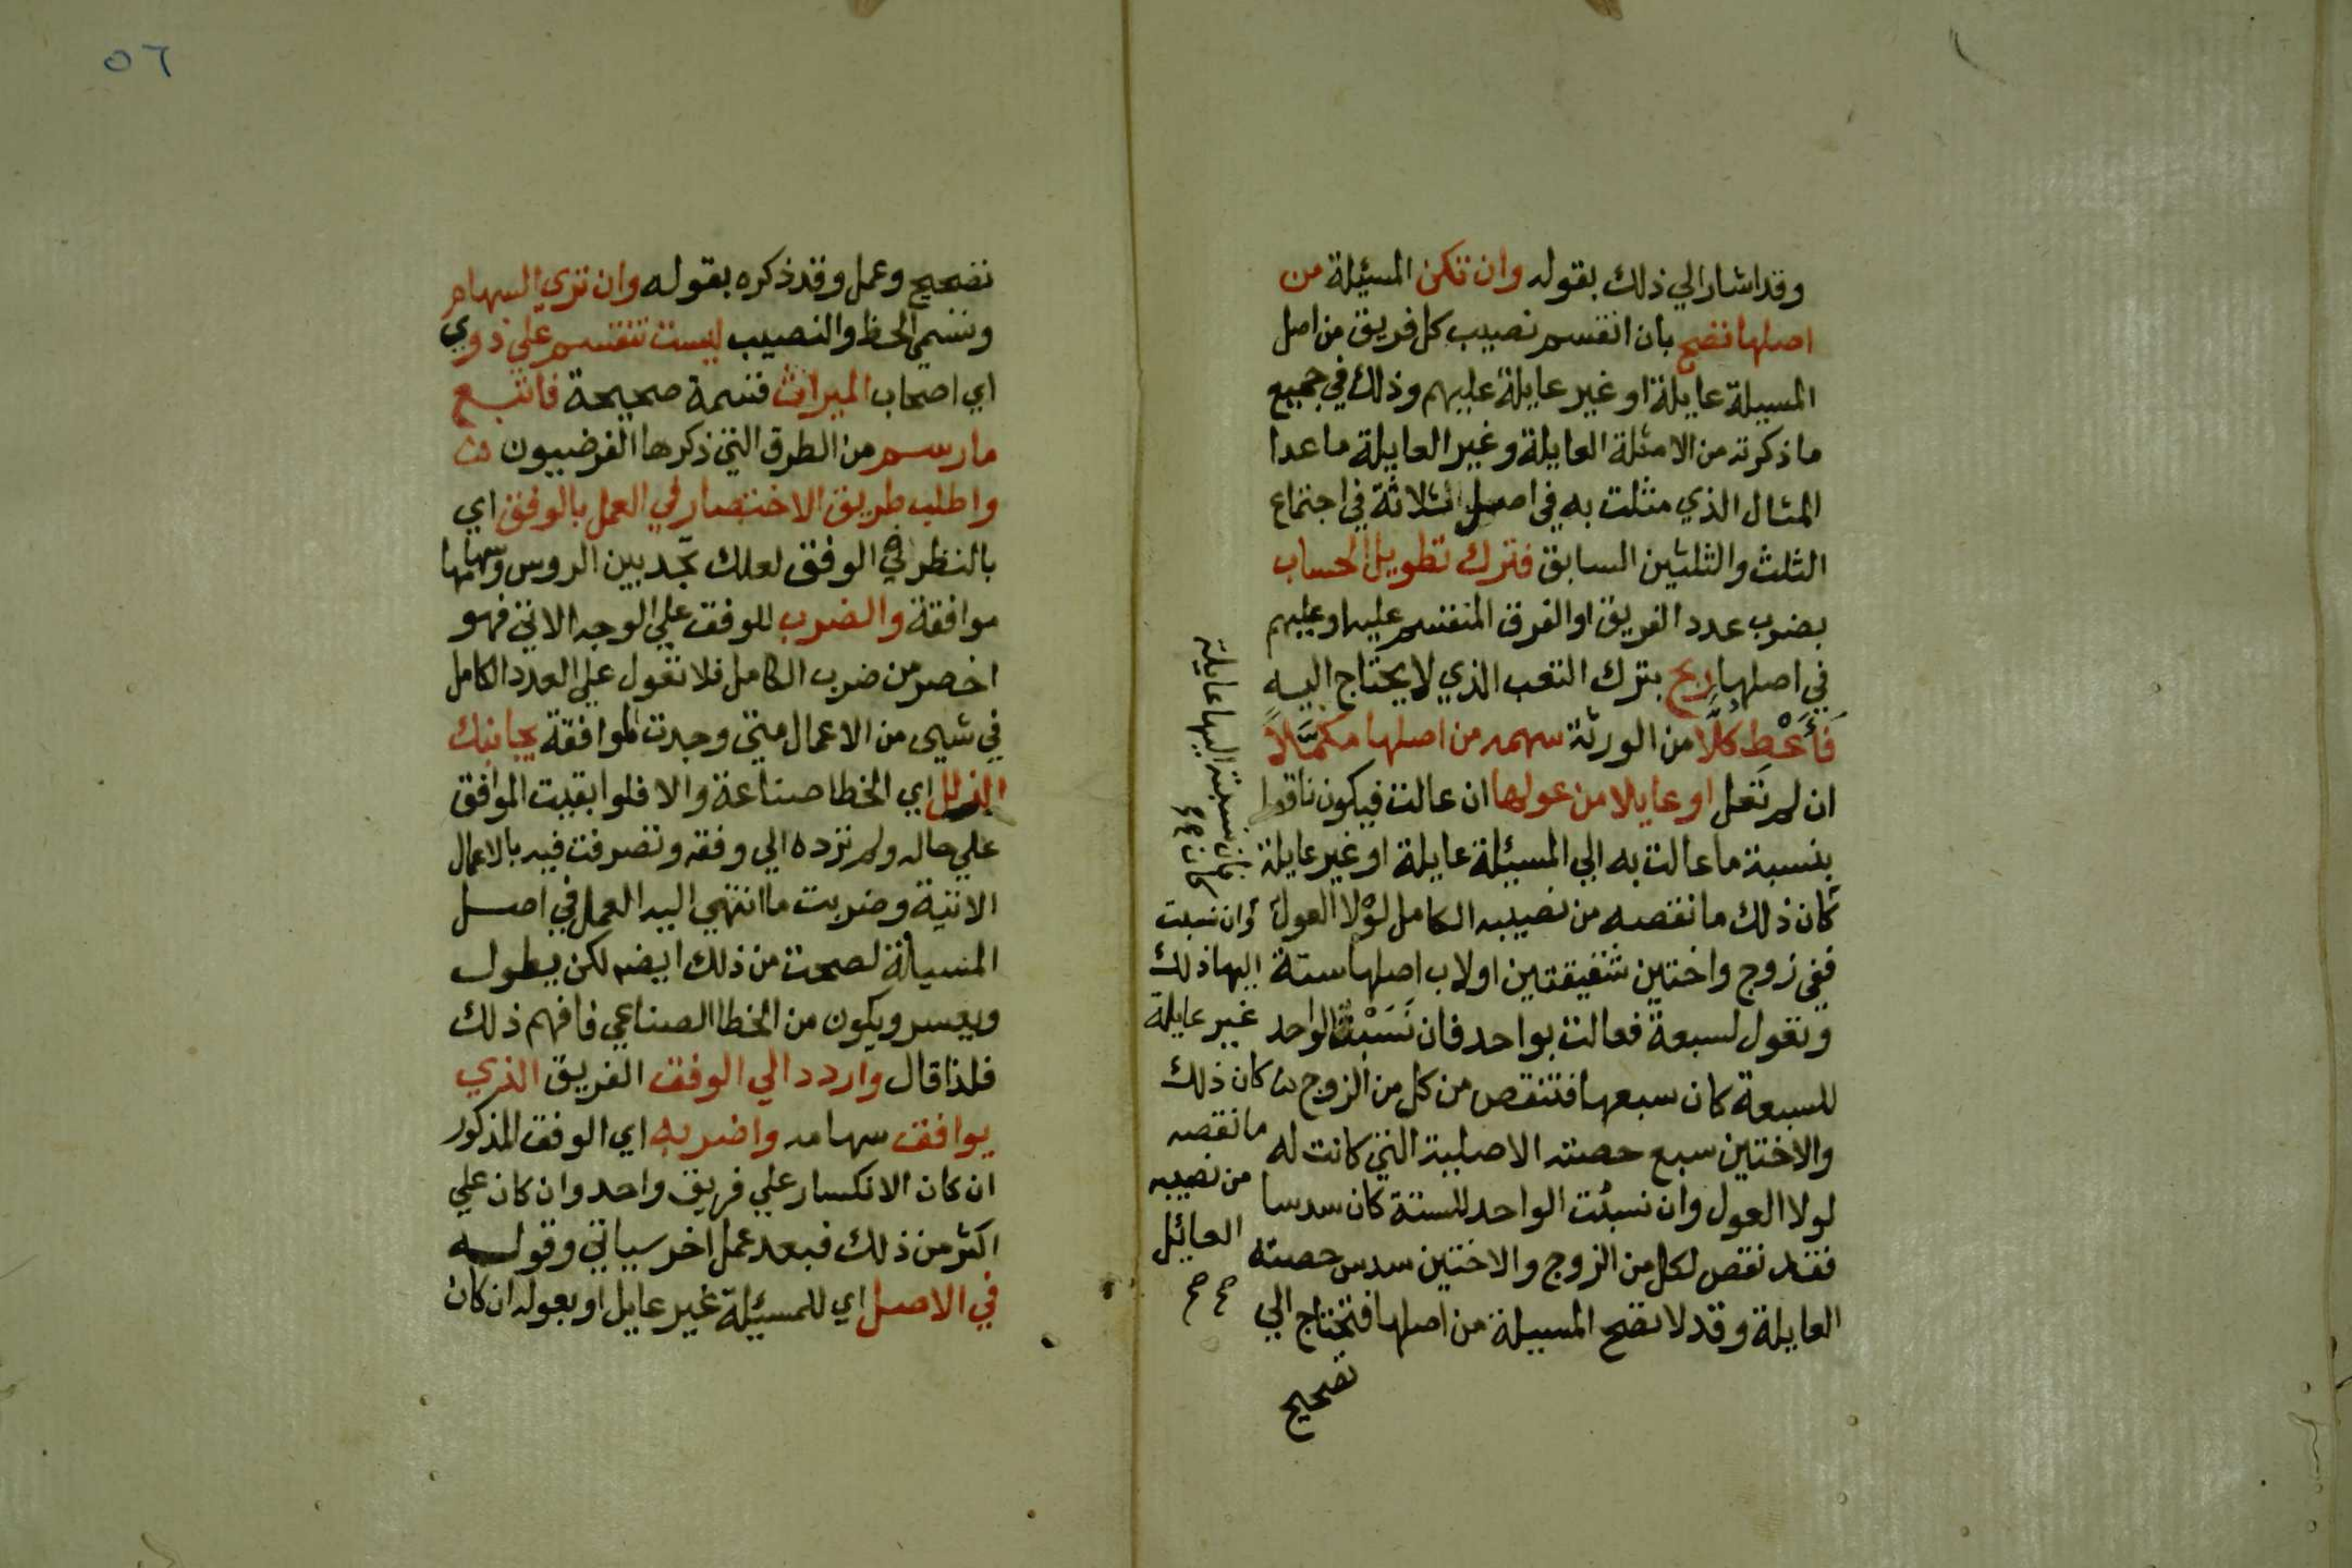 وقد اشار الي ذلك بقوله وان تكن المسئلة من
اصلها تصح بان انقسم نصيب كل فريق من اصل
المسيلة عايلة او غير عايلة عليهم وذلك في جميع
ما ذكرته من الامثلة العايلة وغير العايلة ما عدا
المثال الذي مثلت به في اصل الثلاثة في اجتماع
الثلث والثلثين السابق فترك تطويل الحساب
بضرب عدد الفريق او الفرق المنقسم عليها وعليهم
في اصلها ربح بترك التعب الذي لا يحتاج اليه
فَأَعْطِ كُلًّا من الورثة سهمه من اصلها مكمَّلاً
ان لم تَعل او عايلا من عولها ان عالت فيكون ناقصا
بنسبة ما عالت به الي المسيئلة عايلة او غير عايلة
كان ذلك ما نقصه من نصيبه الكامل لولا العول
ففي زوج واختين شقيقتين او لاب اصلها ستة
وتعول لسبعة فعالت بواحد فان نَسَبْتَ الواحد
للسبعة كان سبعها فتنقص من كل من الزوج
والاختين سبع حصته الاصلية التي كانت له
لولا العول وان نسبت الواحد للستة كان سدسا
فقد نقص لكل من الزوج والاختين سدس حصته
العايلة وقد لا تصح المسيلة من اصلها فتحتاج الي
تصحيح
فان نسبته اليها عايلة
كان
وان نسبت
اليها ذلك
غير عايلة
كان ذلك
ما نقصه
من نصيبه
العائل
صح
٥٦
تصحيح وعمل وقد ذكره بقوله وان تري السهام
وتسمي الحظ والنصيب ليست تنقسم علي ذوي
اي اصحاب الميراث قسمة صحيحة فاتبع
ما رسم من الطرق التي ذكرها الفرضييون
واطلب طريق الاختصار في العمل بالوفق اي
بالنظر في الوفق لعلك تجد بين الروس وسهامها
موافقة والضرب للوفق علي الوجه الاتي فهو
اخصر من ضرب الكامل فلا تعول علي العدد الكامل
في شيي من الاعمال متي وجدت الموافقة يجانبك
الزلل اي الخطا صناعة والا فلو ابقيت الموافق
علي حاله ولم ترده الي وفقه وتصرفت فيه بالاعمال
الاتية وضربت ما انتهي اليه العمل في اصل
المسيلة لصحت من ذلك ايضا لكن يطول
ويعسر ويكون من الخطا الصناعي فافهم ذلك
فلذا قال واردد الي الوفق الفريق الذي
يوافق سهامه واضربه اي الوفق المذكور
ان كان الانكسار علي فريق واحد وان كان علي
اكثر من ذلك فبعد عمل اخر سياتي وقوله
في الاصل اي للمسيئلة غير عايل او بعوله ان كان